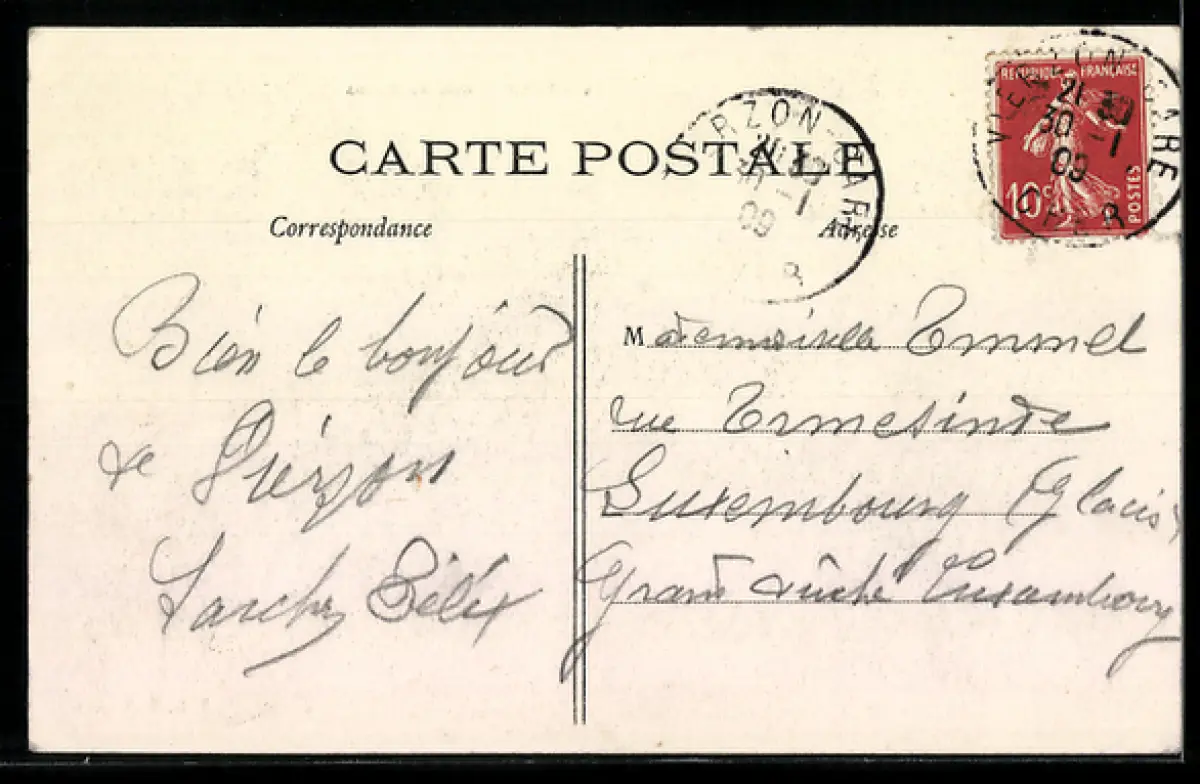 CARTE POSTALE
Correspondance
Adresse
REPUBLIQUE FRANÇAISE
10c
POSTES
VIERZON-GARE
21 30
30 -1
09
CHER
RZON-GAR
30 -1
09
R
Bien le bonjour
de Vierzon
Félix
Mademoiselle Emmel
rue Ermesinde
Luxembourg (Glacis)
Grand duché Luxembourg